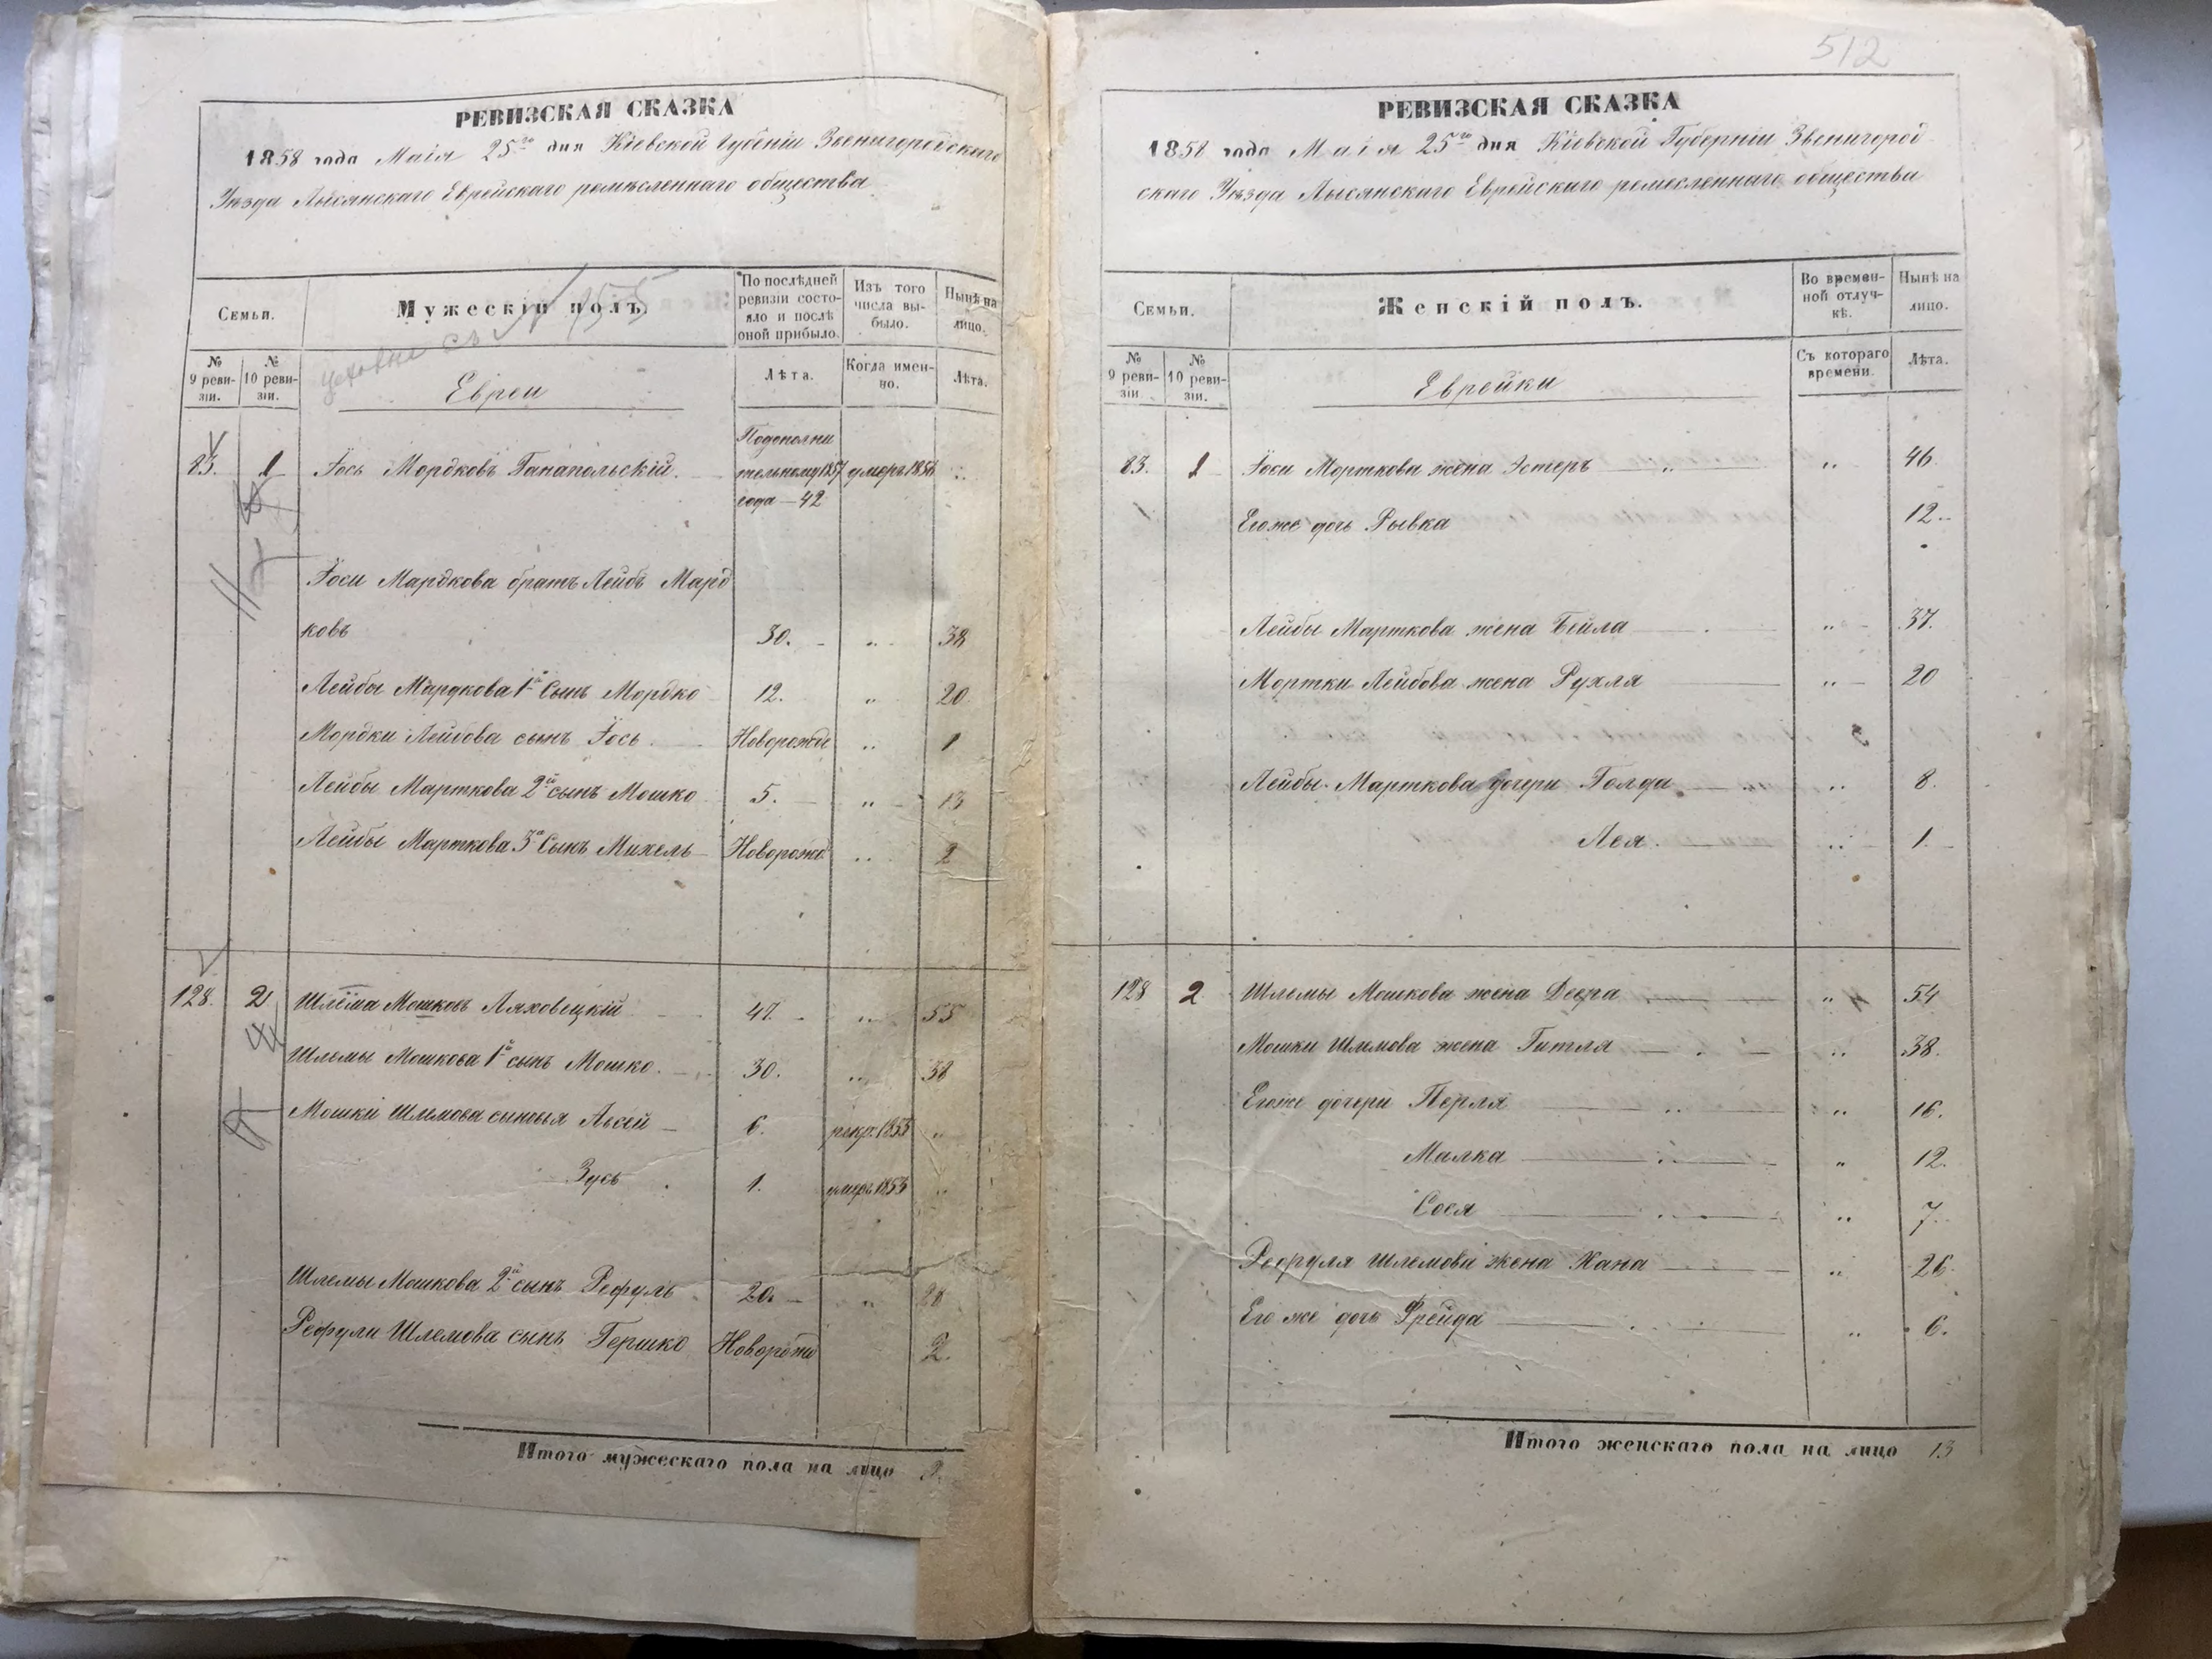 РЕВИЗСКАЯ СКАЗКА
1858 года Маія 25го дня Кіевской Губѣніи Звенигородскаго
Уѣзда Лысянскаго Еврейскаго ремѣсленнаго общества
Семьи.
Мужескій полъ.
По послѣдней ревизіи состо-
яло и послѣ
оной прибыло.
Изъ того
числа вы-
было.
Нынѣ на
лицо.
№
9 реви-
зіи.
№
10 реви-
зіи.
Евреи
Лѣта.
Когда имен-
но.
Лѣта.
83. 1 Іось Мордковъ Ганапольскій. Подополни
тельному 1857 умеръ 1856 "
года — 42
Іоси Мардкова братъ Лейбъ Мард
ковъ 30. " 38
Лейбы Мардкова 1й Сынъ Мордко 12. " 20
Мордки Лейбова сынъ Іось. Новорожд " 1
Лейбы Марткова 2й сынъ Мошко 5. " 13
Лейбы Марткова 3й Сынъ Михель Новорожд " 2
128. 2 Шлёма Мошковъ Ляховецкій 47. " 55
Шлемы Мошкова 1й сынъ Мошко. 30. " 38
Мошки Шлемова сыновья Авсей 6. рекр. 1853 "
Зусь 1. умеръ 1853 "
Шлемы Мошкова 2й сынъ Рефуль 20. " 28
Рефули Шлемова сынъ Гершко Новорожд 2.
Итого мужескаго пола на лицо
512
РЕВИЗСКАЯ СКАЗКА
1858 года Маія 25го дня Кіевской Губерніи Звенигород
скаго Уѣзда Лысянскаго Еврейскаго ремесленнаго общества
Семьи.
Женскій полъ.
Во времен-
ной отлуч-
кѣ.
Нынѣ на
лицо.
№
9 реви-
зіи.
№
10 реви-
зіи.
Еврейки
Съ котораго
времени.
Лѣта.
83. 1 Іоси Морткова жена Эстеръ " 46
Егоже дочь Рывка 12
Лейбы Марткова жена Бейла " 37.
Мортки Лейбова жена Рухля " 20
Лейбы Марткова дочери Голда " 8.
Лея. " 1.
128 2 Шлемы Мошкова жена Двера " 54
Мошки Шлемова жена Гитля " 38.
Егоже дочери Перля " 16.
Малка " 12.
Сося " 7.
Рефуля Шлемова жена Хана " 26.
Его же дочь Фрейда " 6.
Итого женскаго пола на лицо 13